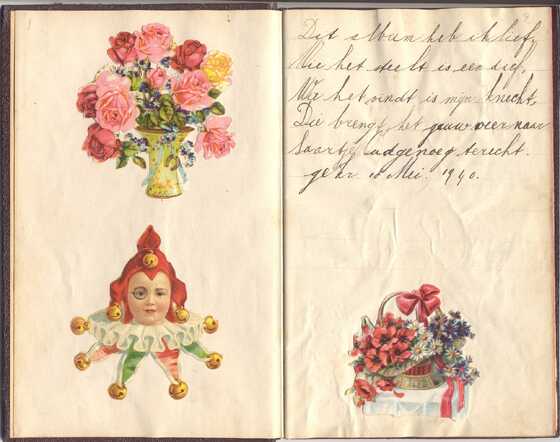 Dit album heb ik lief,
Wie het steelt is een dief,
Wie het vindt is mijn knecht,
Die brengt het gauw weer naar
Saartje terecht.
Mei. 1940.